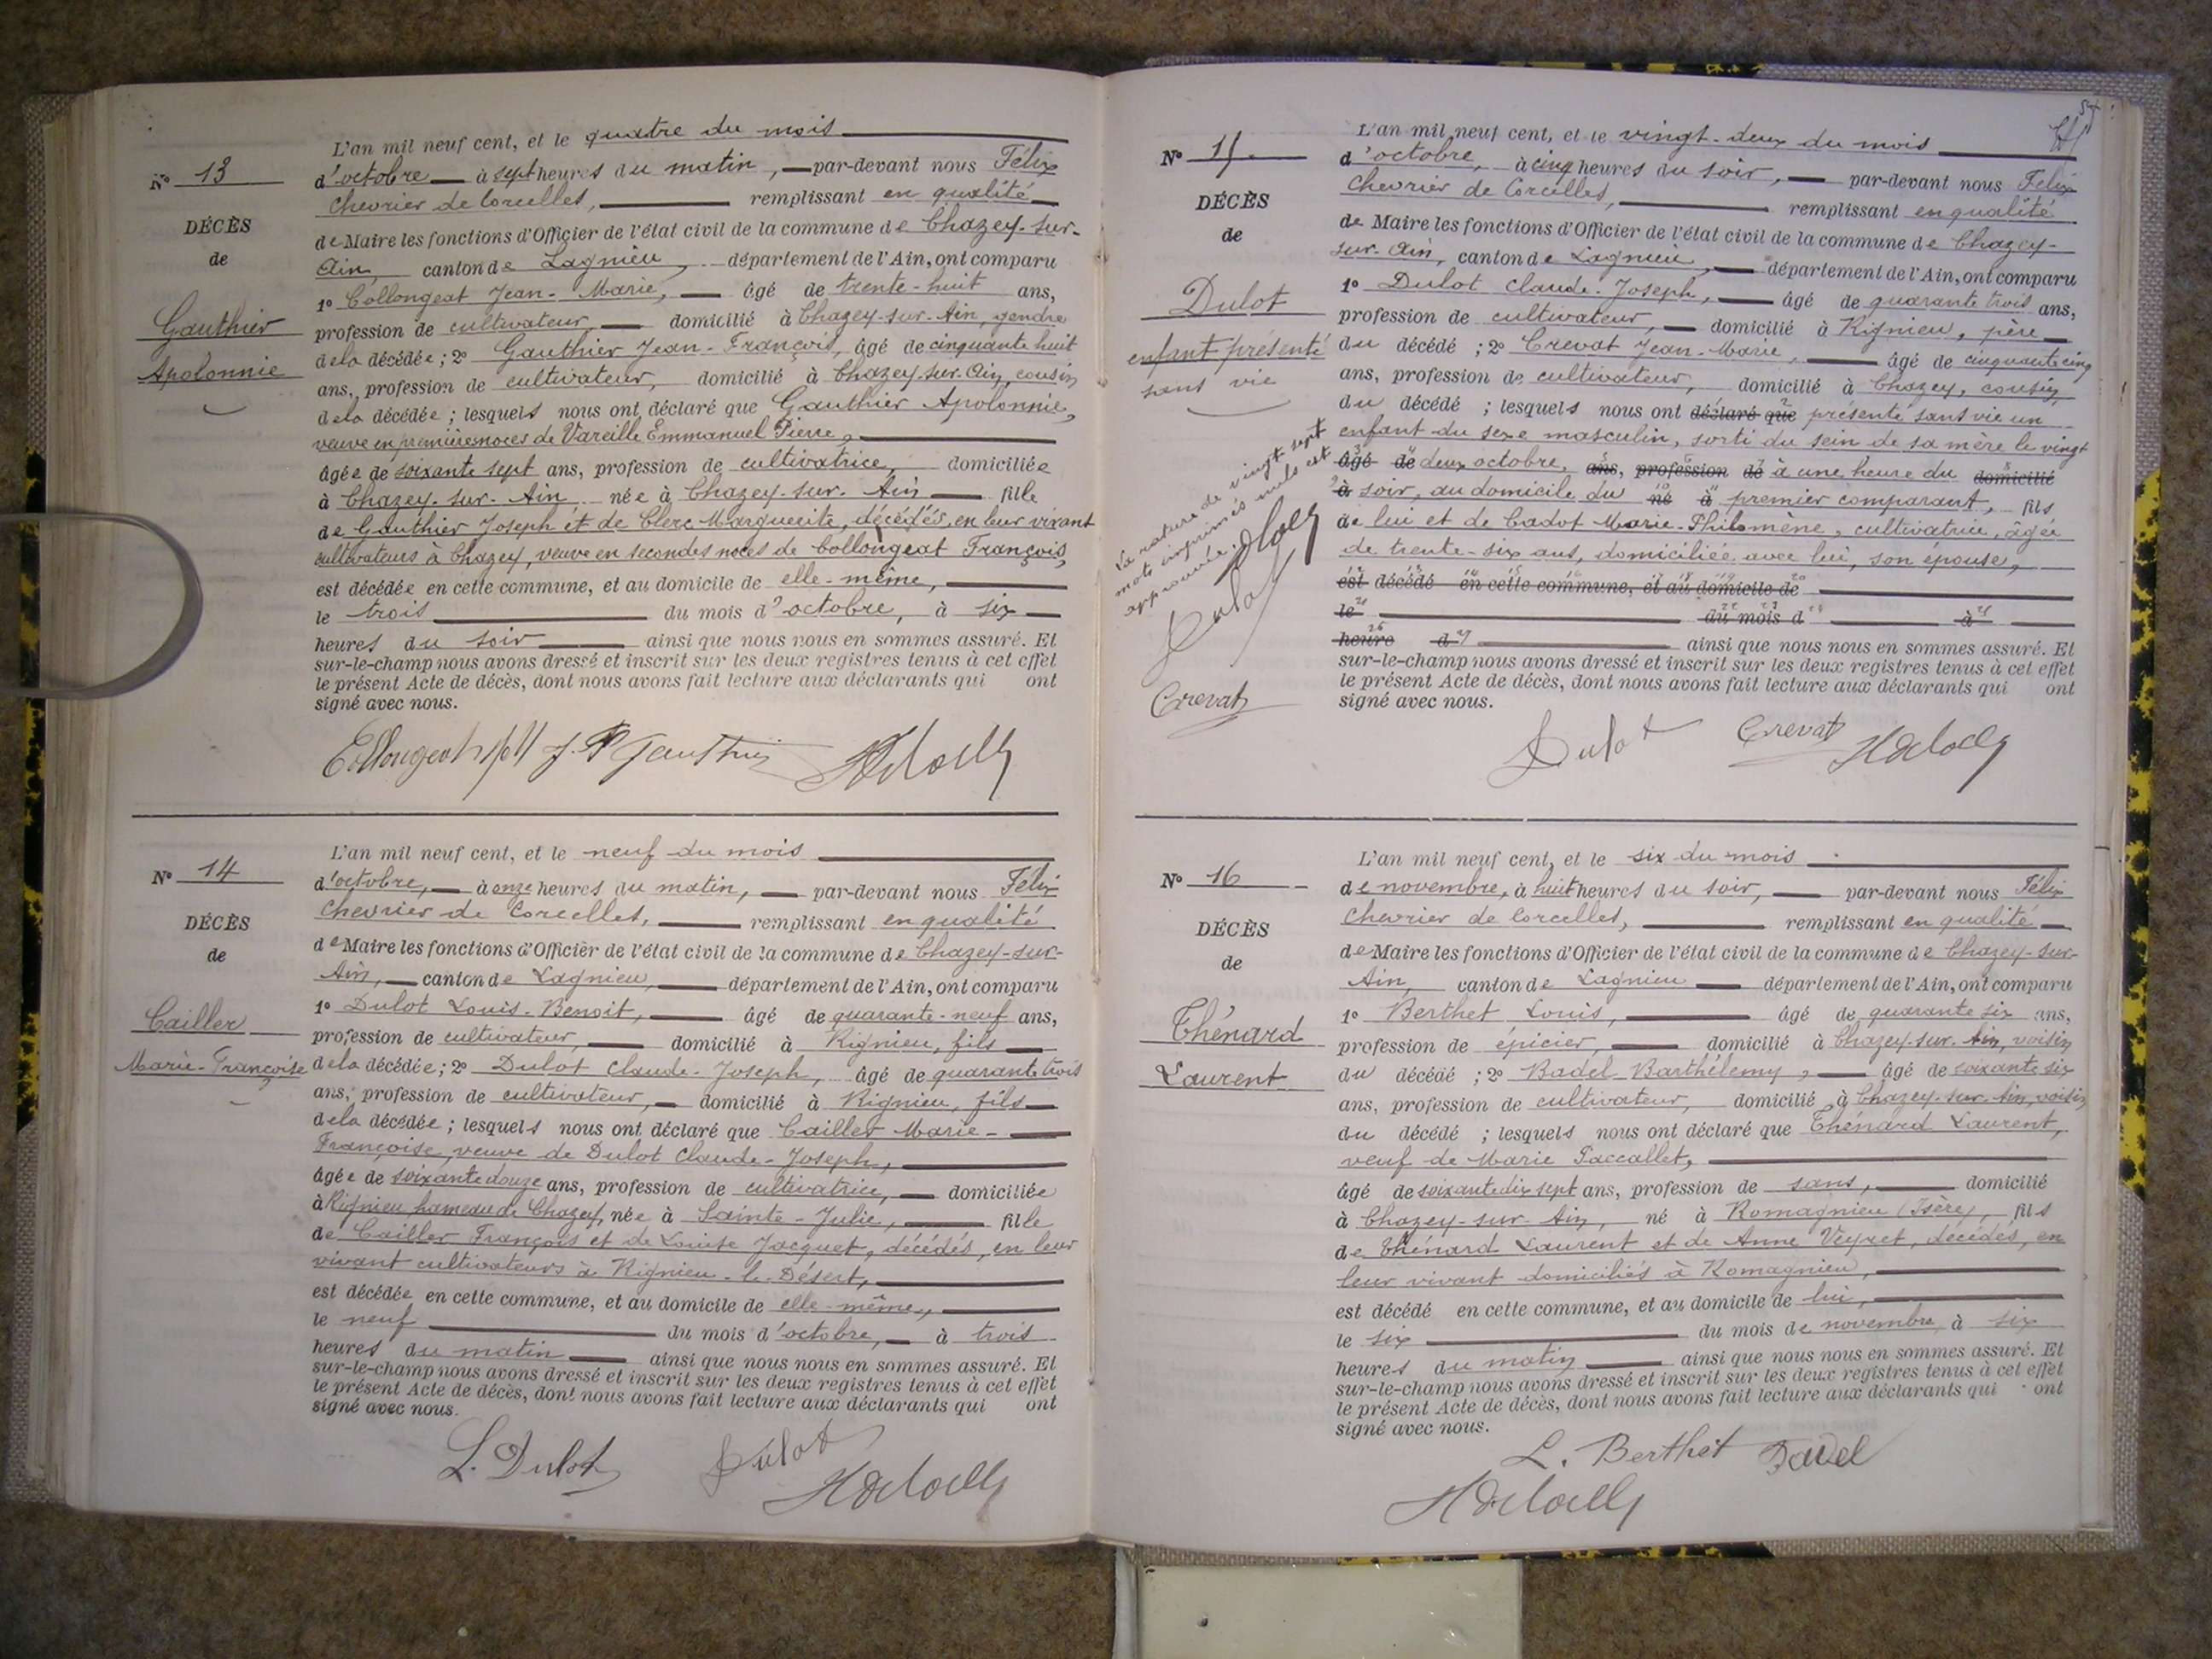 L'an mil neuf cent, et le quatre du mois
N° 13
d'octobre à sept heures du matin, par-devant nous Félix
Chevrier de Corcelles, remplissant en qualité
DÉCÈS
de Maire les fonctions d'Officier de l'état civil de la commune de Chazey-sur-
de
Ain, canton de Lagnieu, département de l'Ain, ont comparu
1° Collongeat Jean-Marie, âgé de trente-huit ans,
Gauthier
profession de cultivateur, domicilié à Chazey-sur-Ain, gendre
de la décédée ; 2° Gauthier Jean-François, âgé de cinquante huit
Apolonnie
ans, profession de cultivateur, domicilié à Chazey-sur-Ain, cousin
de la décédée ; lesquels nous ont déclaré que Gauthier Apolonnie,
veuve en premières noces de Vareille Emmanuel Pierre,
âgée de soixante sept ans, profession de cultivatrice, domiciliée
à Chazey-sur-Ain, née à Chazey-sur-Ain fille
de Gauthier Joseph et de Clerc Marguerite, décédés, en leur vivant
cultivateurs à Chazey, veuve en secondes noces de Collongeat François,
est décédée en cette commune, et au domicile de elle-même,
le trois du mois d'octobre, à six
heures du soir ainsi que nous nous en sommes assuré. Et
sur-le-champ nous avons dressé et inscrit sur les deux registres tenus à cet effet
le présent Acte de décès, dont nous avons fait lecture aux déclarants qui ont
signé avec nous.
Collongeat J. F Gauthier
L'an mil neuf cent, et le neuf du mois
N° 14
d'octobre, à onze heures du matin, par-devant nous Félix
Chevrier de Corcelles, remplissant en qualité
DÉCÈS
de Maire les fonctions d'Officier de l'état civil de la commune de Chazey-sur-
de
Ain, canton de Lagnieu, département de l'Ain, ont comparu
1° Dulot Louis-Benoit, âgé de quarante-neuf ans,
Cailler
profession de cultivateur, domicilié à Rignieu, fils
Marie-Françoise
de la décédée ; 2° Dulot Claude-Joseph, âgé de quarante trois
ans, profession de cultivateur, domicilié à Rignieu, fils
de la décédée ; lesquels nous ont déclaré que Cailler Marie-
Françoise, veuve de Dulot Claude-Joseph,
âgée de soixante douze ans, profession de cultivatrice, domiciliée
à Rignieu hameau de Chazey, née à Sainte-Julie, fille
de Cailler François et de Louise Jacquet, décédés, en leur
vivant cultivateurs à Rignieu-le-Désert,
est décédée en cette commune, et au domicile de elle-même,
le neuf du mois d'octobre, à trois
heures du matin ainsi que nous nous en sommes assuré. Et
sur-le-champ nous avons dressé et inscrit sur les deux registres tenus à cet effet
le présent Acte de décès, dont nous avons fait lecture aux déclarants qui ont
signé avec nous.
L. Dulot Dulot
L'an mil neuf cent, et le vingt-deux du mois
N° 15.
d'octobre, à cinq heures du soir, par-devant nous Félix
Chevrier de Corcelles, remplissant en qualité
DÉCÈS
de Maire les fonctions d'Officier de l'état civil de la commune de Chazey-
de
sur-Ain, canton de Lagnieu, département de l'Ain, ont comparu
1° Dulot Claude-Joseph, âgé de quarante trois ans,
Dulot
profession de cultivateur, domicilié à Rignieu, père
enfant présenté
du décédé ; 2° Crevat Jean-Marie, âgé de cinquante cinq
sans vie
ans, profession de cultivateur, domicilié à Chazey, cousin
du décédé ; lesquels nous ont déclaré que présenté sans vie un
enfant du sexe masculin, sorti du sein de sa mère le vingt
âgé de deux octobre, ans, profession de à une heure du domicilié
à soir, au domicile du né à premier comparant, fils
de lui et de Cadot Marie-Philomène, cultivatrice, âgée
de trente-six ans, domiciliée avec lui, son épouse,
est décédé en cette commune, et au domicile de
le du mois d à
heure d ainsi que nous nous en sommes assuré. Et
sur-le-champ nous avons dressé et inscrit sur les deux registres tenus à cet effet
le présent Acte de décès, dont nous avons fait lecture aux déclarants qui ont
signé avec nous.
La rature de vingt sept
mots imprimés nuls est
approuvée.
Dulot
Crevat
Dulot Crevat
L'an mil neuf cent, et le six du mois
N° 16
de novembre, à huit heures du soir, par-devant nous Félix
Chevrier de Corcelles, remplissant en qualité
DÉCÈS
de Maire les fonctions d'Officier de l'état civil de la commune de Chazey-sur-
de
Ain, canton de Lagnieu département de l'Ain, ont comparu
1° Berthet Louis, âgé de quarante six ans,
Thénard
profession de épicier, domicilié à Chazey-sur-Ain, voisin
Laurent
du décédé ; 2° Badel Barthélemy, âgé de soixante six
ans, profession de cultivateur, domicilié à Chazey-sur-Ain, voisin
du décédé ; lesquels nous ont déclaré que Thénard Laurent,
veuf de Marie Paccallet,
âgé de soixante dix sept ans, profession de sans, domicilié
à Chazey-sur-Ain, né à Romagnieu (Isère), fils
de Thénard Laurent et de Anne Veyret, décédés, en
leur vivant domiciliés à Romagnieu,
est décédé en cette commune, et au domicile de lui,
le six du mois de novembre à six
heures du matin ainsi que nous nous en sommes assuré. Et
sur-le-champ nous avons dressé et inscrit sur les deux registres tenus à cet effet
le présent Acte de décès, dont nous avons fait lecture aux déclarants qui ont
signé avec nous.
L. Berthet Badel